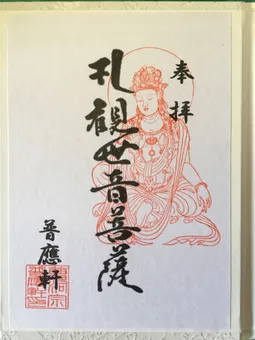 奉拝
礼観世音菩薩
普應軒